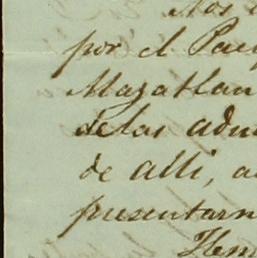 Nos
por el Paq
Mazatlan
de las adu
de alli, a
presentarn
Hem